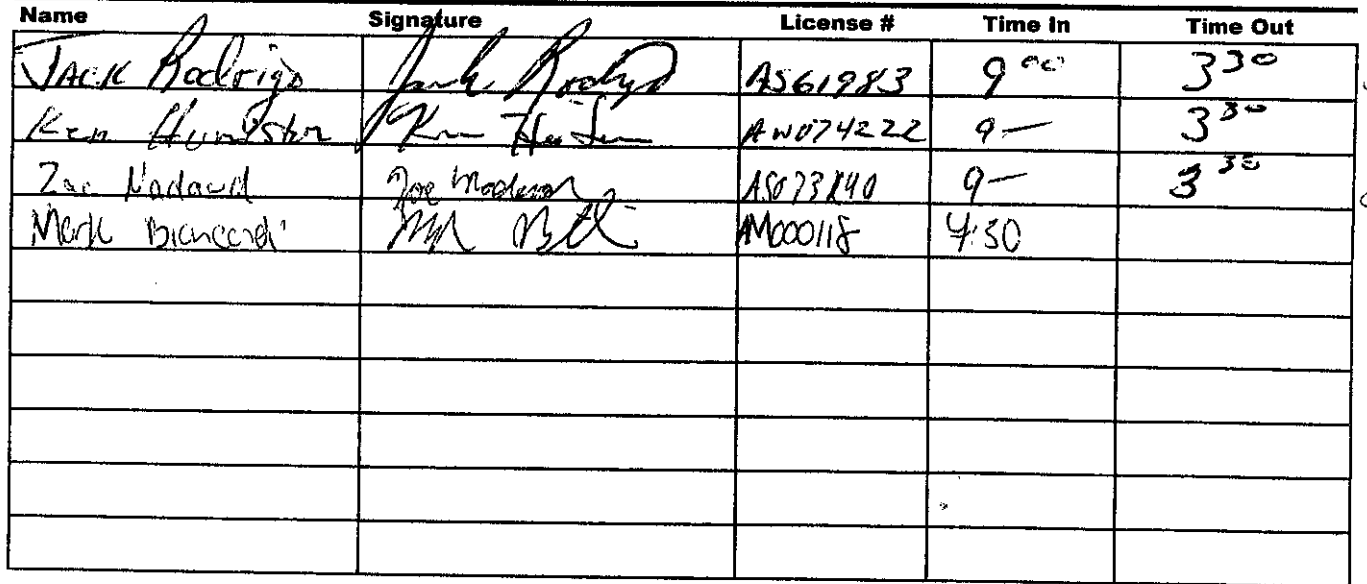 Name Signature License # Time In Time Out
JACK Rodrigo Jack Rodrigo AS61983 9 00 3 30
Ken Ken AW074222 9 — 3 30
Zac Nadaud AS073840 9 — 3 30
Mark AM000118 4:30